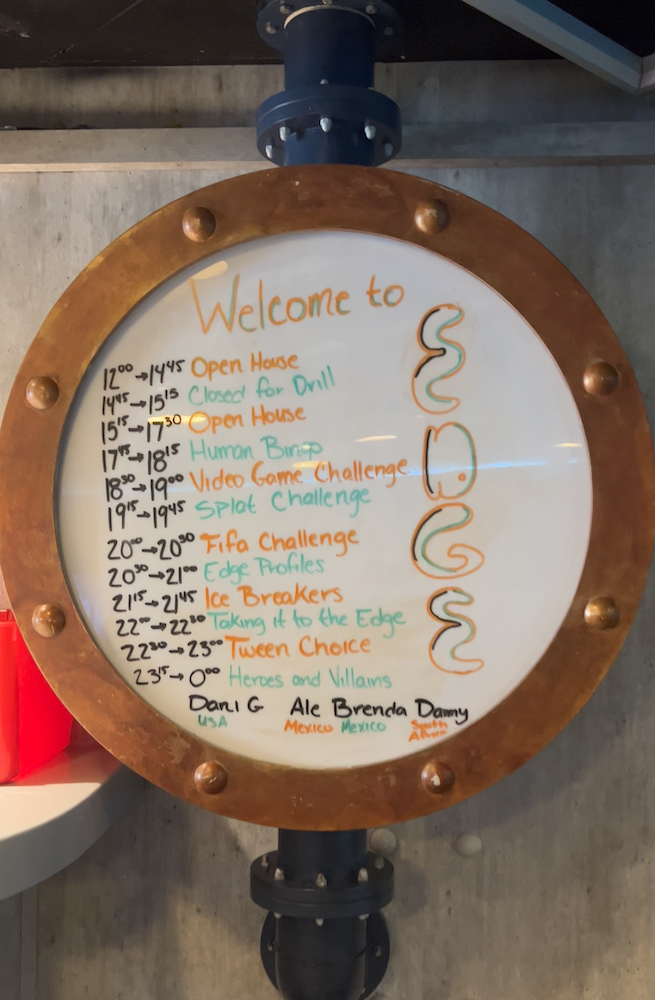 Welcome to
EDGE
12⁰⁰→14⁴⁵ Open House
14⁴⁵→15¹⁵ Closed for Drill
15¹⁵→17³⁰ Open House
17⁴⁵→18¹⁵ Human Bingo
18³⁰→19⁰⁰ Video Game Challenge
19¹⁵→19⁴⁵ Splat Challenge
20⁰⁰→20³⁰ Fifa Challenge
20³⁰→21⁰⁰ Edge Profiles
21¹⁵→21⁴⁵ Ice Breakers
22⁰⁰→22³⁰ Taking it to the Edge
22³⁰→23⁰⁰ Tween Choice
23¹⁵→0⁰⁰ Heroes and Villains
Dani G Ale Brenda Danny
USA Mexico Mexico South Africa